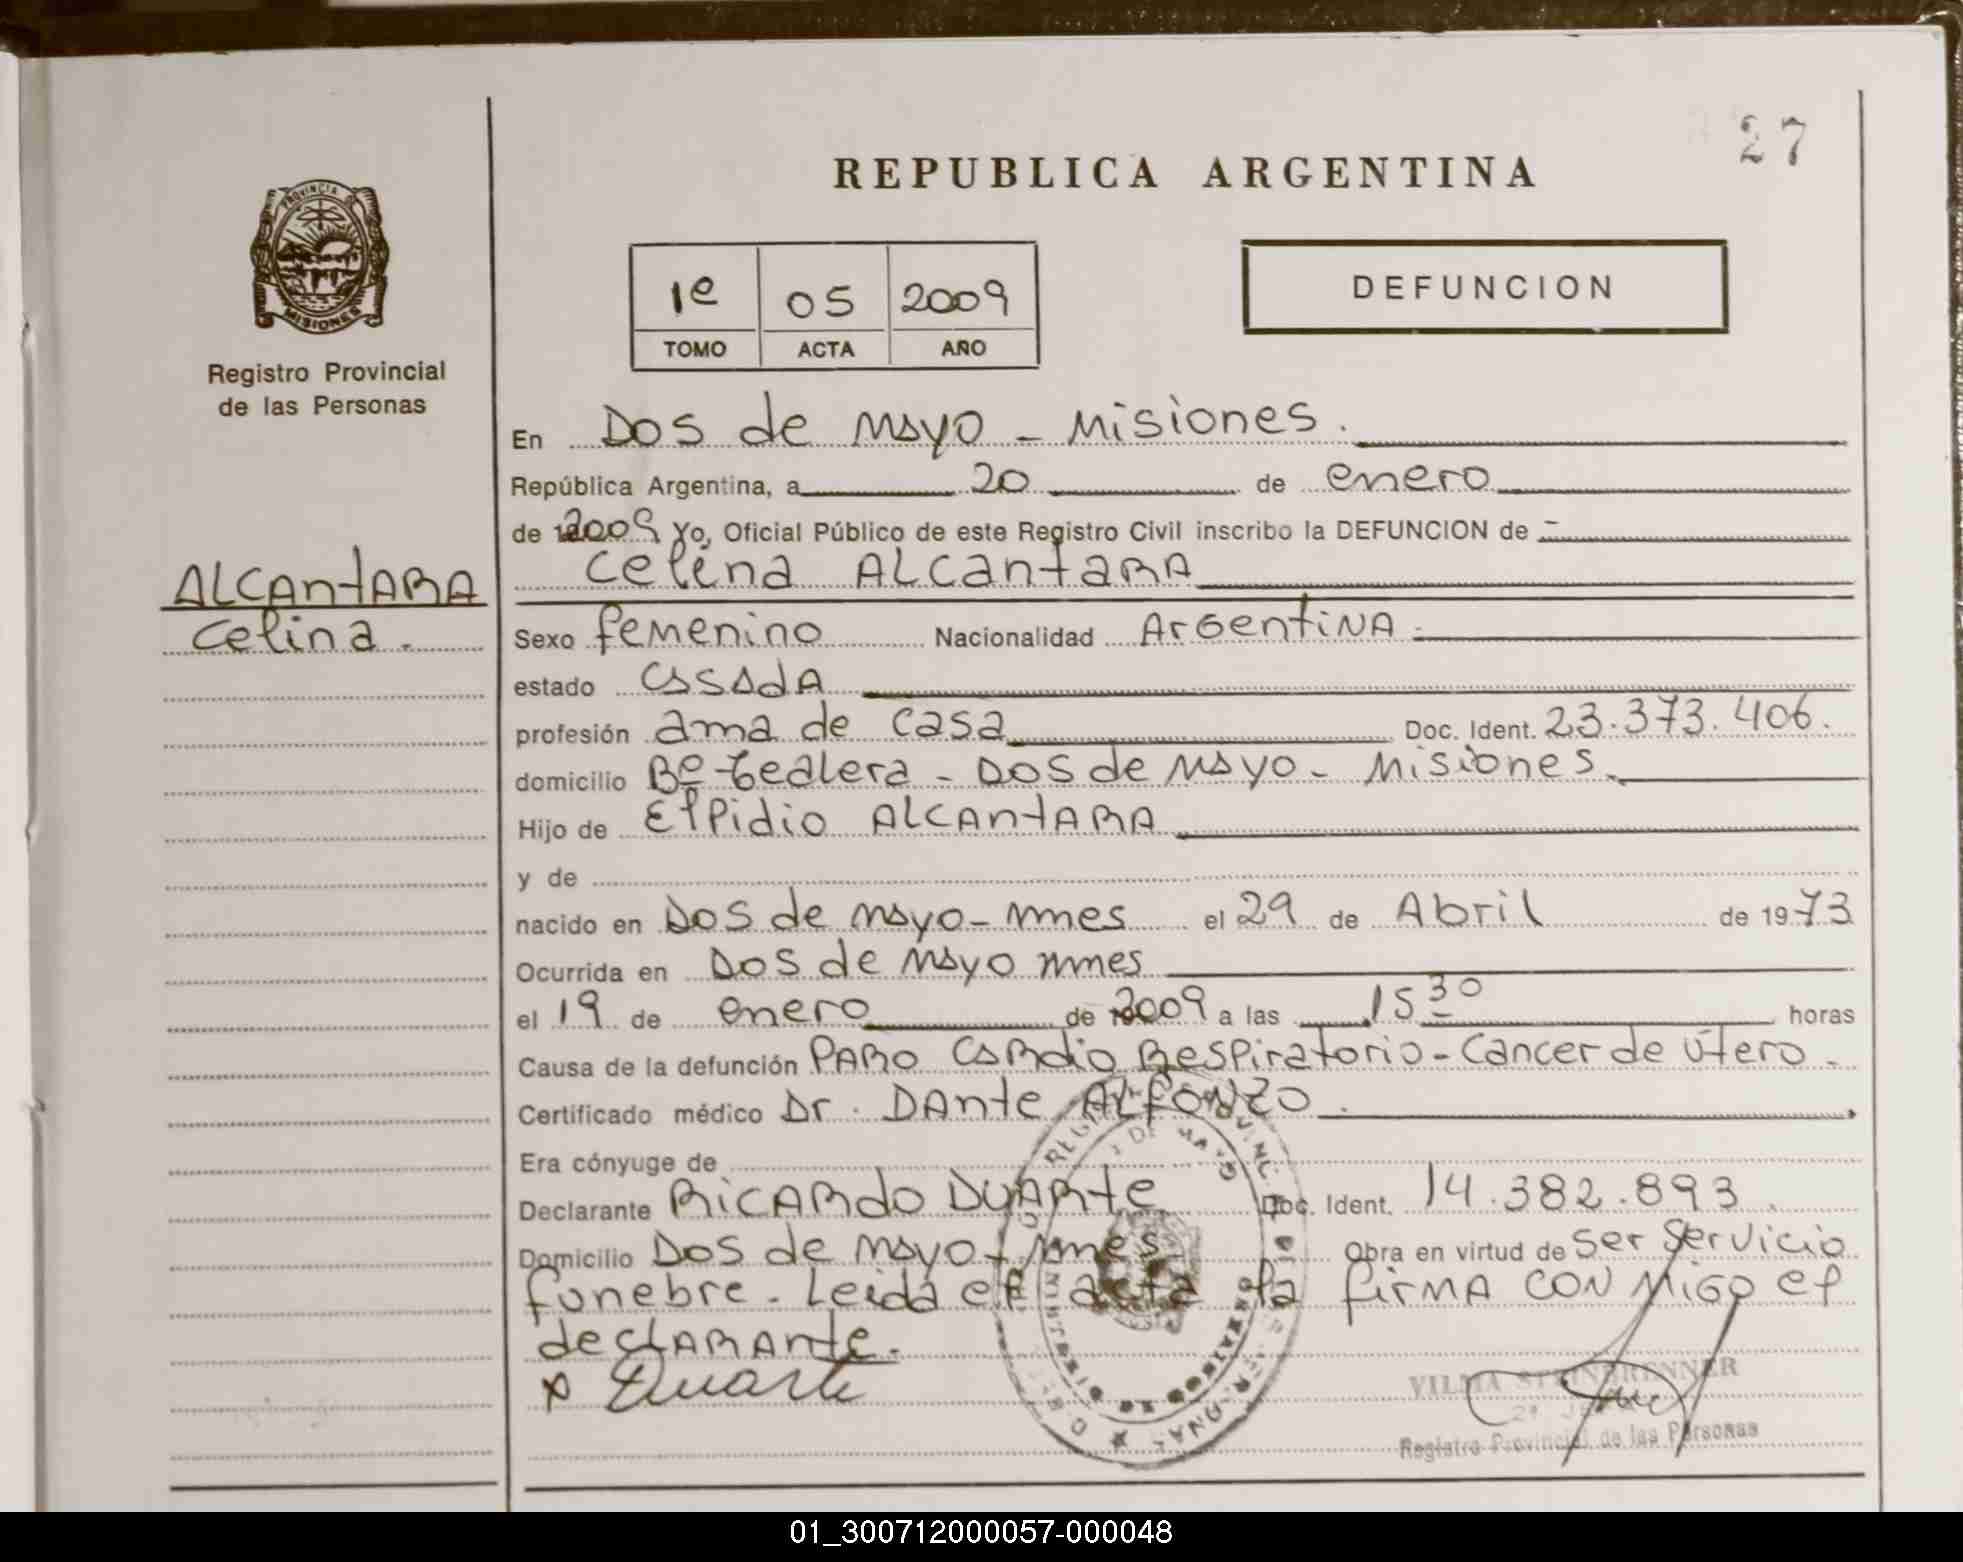 27
REPUBLICA ARGENTINA
PROVINCIA DE
MISIONES
Registro Provincial
de las Personas
1e 05 2009
TOMO ACTA AÑO
DEFUNCION
En Dos de Mayo - Misiones.
República Argentina, a 20 de enero
de 2009 Yo, Oficial Público de este Registro Civil inscribo la DEFUNCION de
Celina ALCANTARA
ALCANTARA
Celina.
Sexo femenino Nacionalidad Argentina
estado casada
profesión ama de casa Doc. Ident. 23.373.406.
domicilio Bº Tealera - Dos de Mayo - Misiones.
Hijo de Elpidio ALCANTARA
y de
nacido en Dos de Mayo - Mnes el 29 de Abril de 1973
Ocurrida en Dos de Mayo Mnes
el 19 de enero de 2009 a las 15 30 horas
Causa de la defunción Paro Cardio Respiratorio - Cancer de útero -
Certificado médico Dr. Dante Alfonzo.
Era cónyuge de
Declarante Ricardo Duarte Doc. Ident. 14.382.893.
Domicilio Dos de Mayo - Mnes Obra en virtud de ser servicio
funebre. Leida el acta la firma conmigo el
declarante.
x Duarte
VILMA STEINBRENNER
Registro Provincial de las Personas
01_300712000057-000048